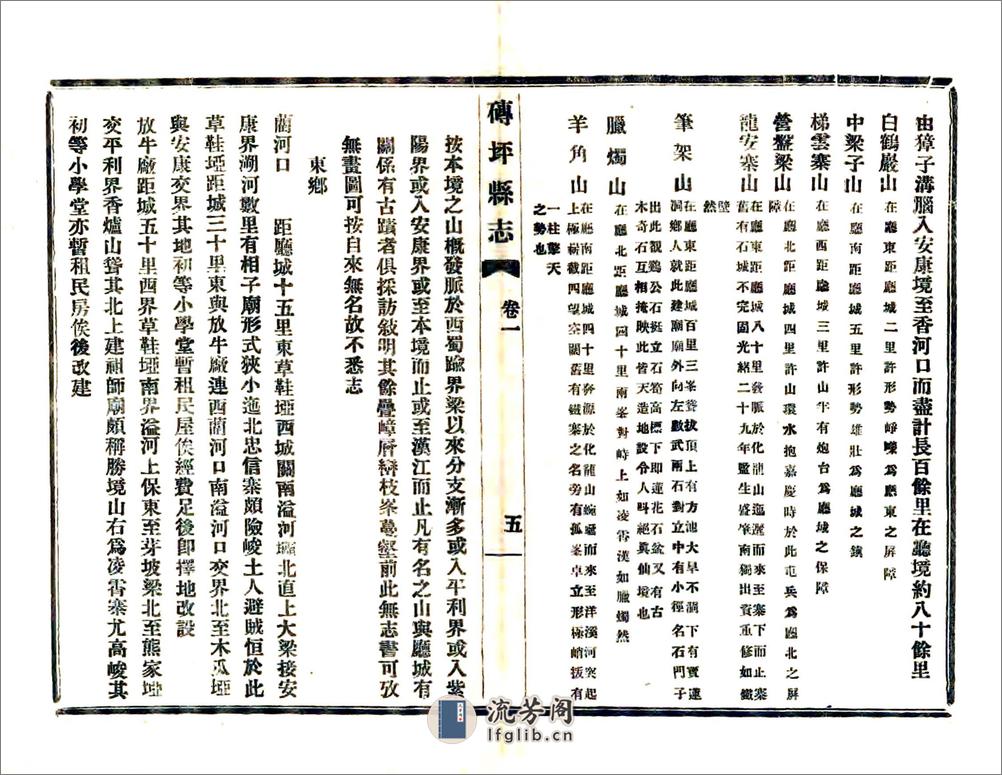 由獐子溝腦入安康境至香河口而盡計長百餘里在廳境約八十餘里
白鶴巖山 在廳東距廳城二里許形勢崢嶸爲廳東之屏障
中梁子山 在廳南距廳城五里許形勢雄壯爲廳城之鎮
梯雲寨山 在廳西距廳城三里許山半有炮台爲廳城之保障
營盤梁山 在廳北距廳城四里許山環水抱嘉慶時於此屯兵爲廳北之屏
障
龍安寨山 在廳東距廳城八十里發脈於化龍山迤邐而來至寨下而止寨
舊有石城不完固光緒二十九年監生盛肇南獨出資重修如鐵
壁
然
筆架山 在廳東距廳城百里三峯聳拔頂上有方池大旱不涸下有寶蓮
洞鄉人就此建廟廟外向左數武兩石對立中有小徑名石門子
出此觀鷄公石挺立石筍高標下即蓮花石盆又有古
木奇石互相掩映此皆天造地設令人叫絕眞仙境也
臘燭山 在廳北距廳城四十里南峯對峙上如凌霄漢如臘燭然
羊角山 在廳南距廳城四十里發源於化龍山蜿蜒而來至洋溪河突起
上極嶄截四望空闊舊有鐵寨之名旁有孤峯卓立形極峭拔有
一柱擎天
之勢也
磚坪縣志 卷一 五
按本境之山概發脈於西蜀踰界梁以來分支漸多或入平利界或入紫
陽界或入安康界或至本境而止或至漢江而止凡有名之山與廳城有
關係有古蹟者俱採訪敍明其餘疊嶂層巒枝峯蔓壑前此無志書可攷
無畫圖可按自來無名故不悉志
東鄉
藺河口 距廳城十五里東草鞋埡西城關南溢河壩北直上大梁接安
康界湖河數里有相子廟形式狹小迤北忠信寨頗險峻土人避賊恒於此
草鞋埡距城三十里東與放牛廠連西藺河口南溢河口交界北至木瓜埡
與安康交界其地初等小學堂暫租民屋俟經費足後卽擇地改設
放牛廠距城五十里西界草鞋埡南界溢河上保東至芽坡梁北至熊家埡
交平利界香爐山聳其北上建祖師廟頗稱勝境山右爲凌霄寨尤高峻其
初等小學堂亦暫租民房俟後改建
流芳阁
lfglib.cn